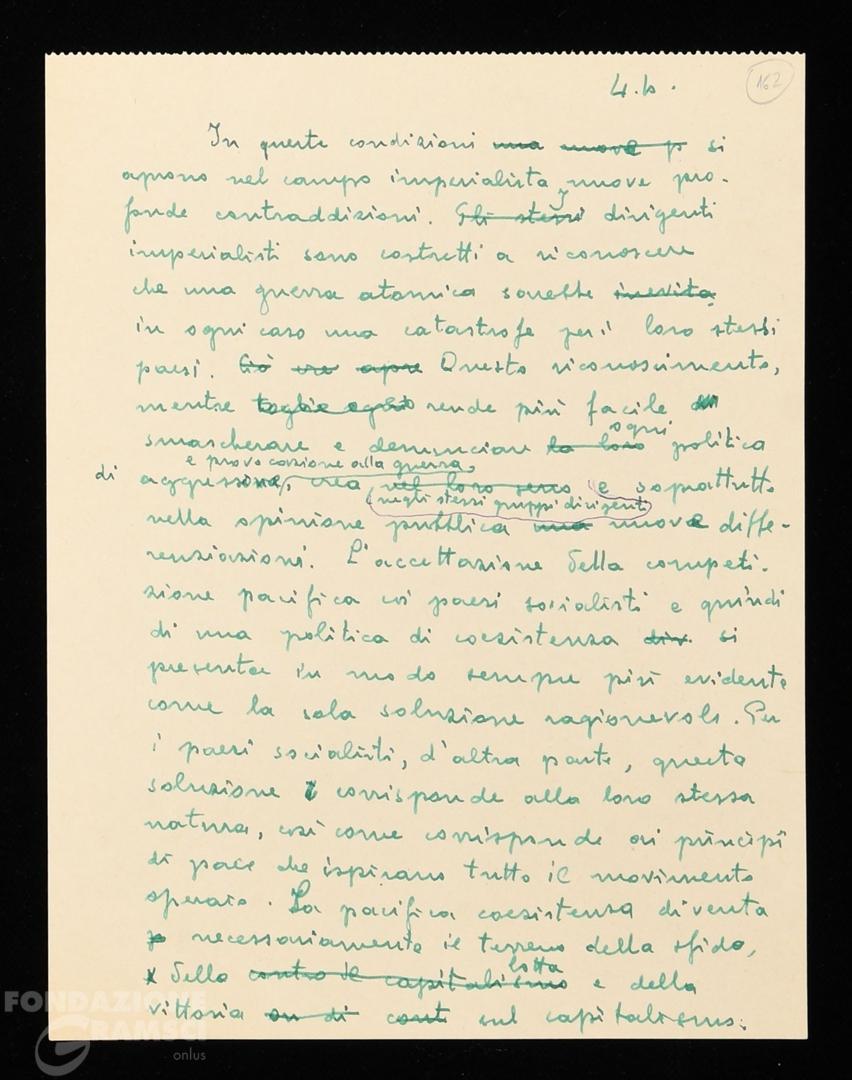 4.b.
162
In queste condizioni una nuova p si
aprono nel campo imperialista, nuove pro-
fonde contraddizioni. Gli stessi dirigenti
imperialisti sono costretti a riconoscere
che una guerra atomica sarebbe inevita
in ogni caso una catastrofe per i loro stessi
paesi. Ciò apre Questo riconoscimento,
mentre toglie ogni rende più facile
ogni
smascherare e denunciare la loro politica
e provocazione alla guerra,
di aggressione, crea nel loro seno e soprattutto
negli stessi gruppi dirigenti
nella opinione pubblica una nuove diffe-
renziazioni. L'accettazione della competi-
zione pacifica coi paesi socialisti e quindi
di una politica di coesistenza div. si
presenta in modo sempre più evidente
come la sola soluzione ragionevole. Per
i paesi socialisti, d'altra parte, questa
soluzione corrisponde alla loro stessa
natura, così come corrisponde ai principî
di pace che ispirano tutto il movimento
operaio. La pacifica coesistenza diventa
p necessariamente il terreno della sfida,
lotta
x della contro il capitalismo e della
vittoria su di cont sul capitalismo.
FONDAZIONE
GRAMSCI
onlus